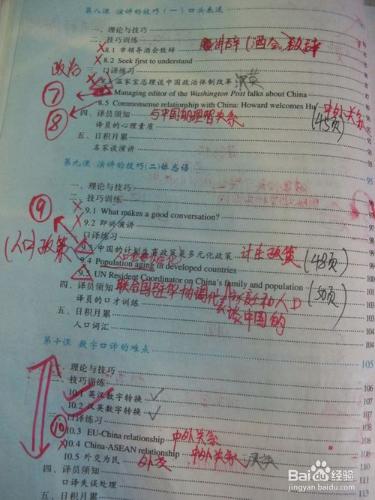 第八课 演讲的技巧(一)口头表述
一、理论与技巧
二、技巧训练
8.1 市领导酒会致辞 (酒会)致辞
8.2 Seek first to understand
三、口译练习
政治 8.3 温家宝总理谈中国政治体制改革
⑦ Managing editor of the Washington Post talks about China
⑧ 8.5 Commonsense relationship with China: Howard welcomes Hu 中外关系
四、译员须知 与中国的理智关系 (45页)
译员的心理素质
五、日积月累 95
名家谈演讲
第九课 演讲的技巧(二)体态语
一、理论与技巧
二、技巧训练
⑨ 9.1 What makes a good conversation?
9.2 即兴演讲
三、口译练习
(人口)政策 9.3 中国的计划生育政策是多元化政策 计生政策 (48页)
9.4 Population aging in developed countries
9.5 UN Resident Coordinator on China's family and population (50页)
四、译员须知 联合国驻华协调代表 人口
译员的口才训练 谈中国的
五、日积月累 104
人口词汇 104
第十课 数字口译的难点 105
一、理论与技巧
二、技巧训练
10.1 英汉数字转换
10.2 汉英数字转换
三、口译练习
⑩ 10.3 EU-China relationship 中外关系
10.4 China-ASEAN relationship 中外关系
10.5 外交为民 外交
四、译员须知
口译失误处理
五、日积月累
Baidu 经验
jingyan.baidu.com